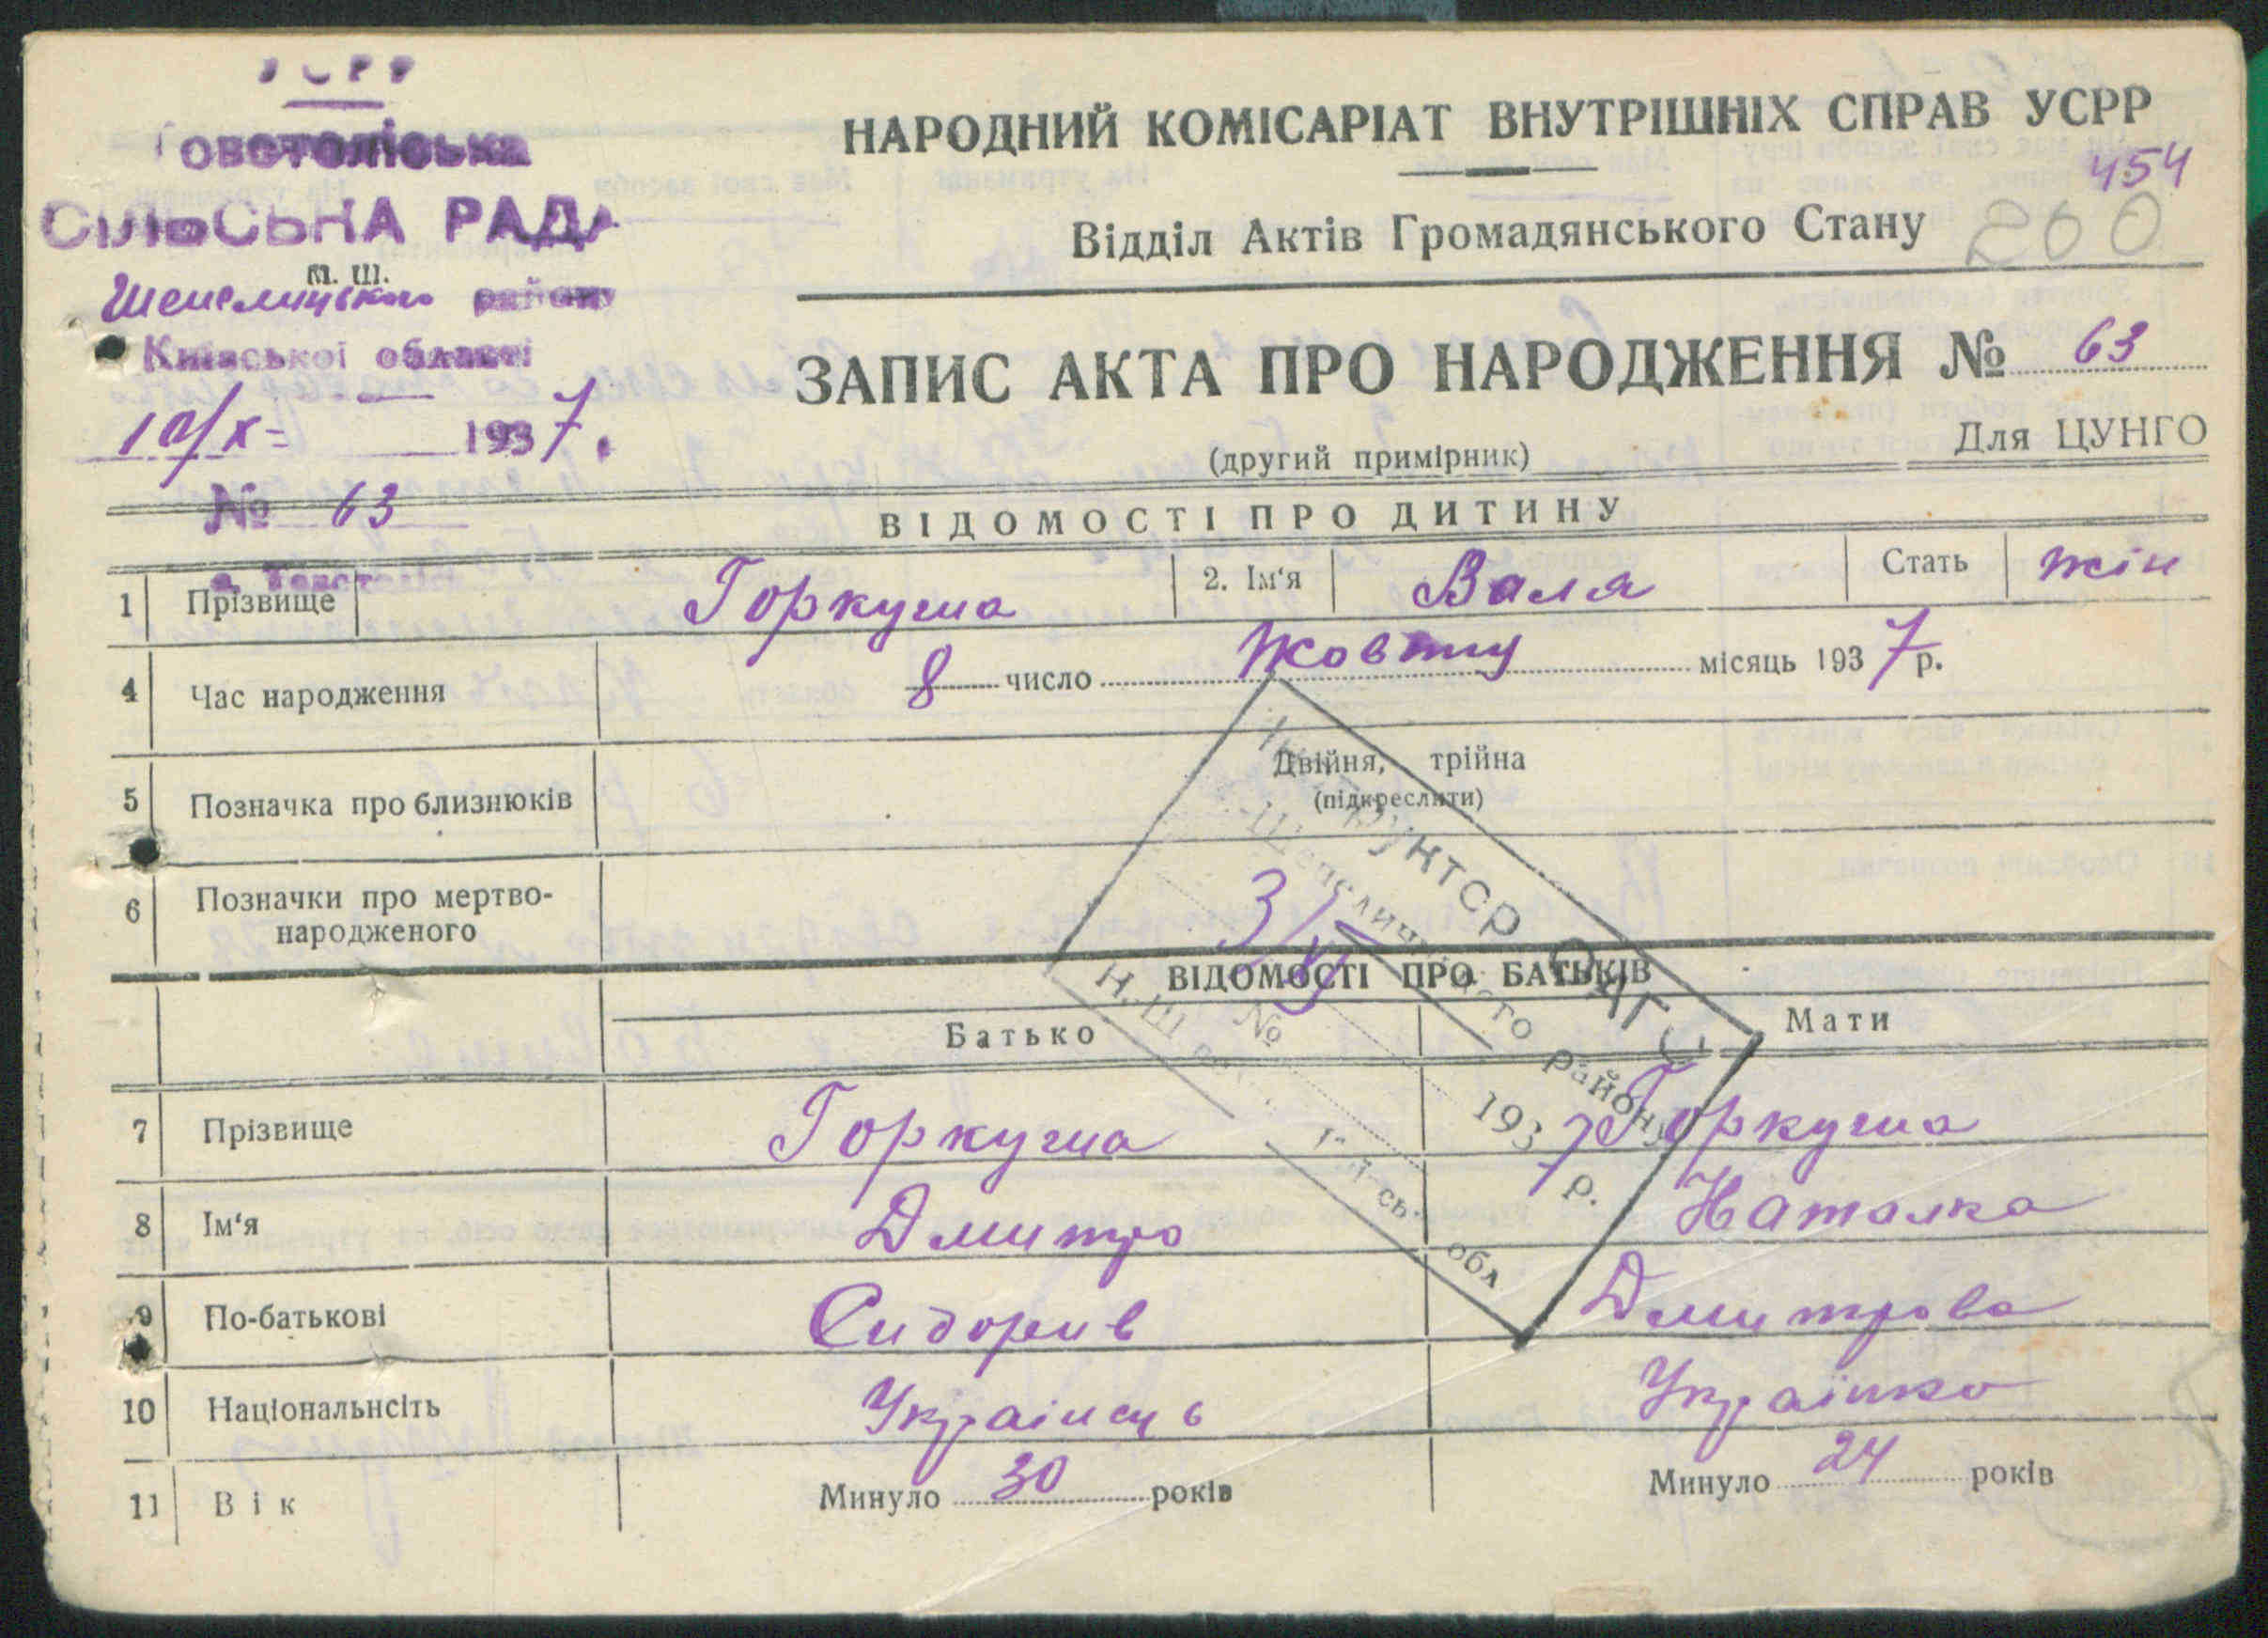 УСРР
СІЛЬСЬКА РАДА
п. ш.
Шепелицького району
Київської області
10/X- 1937.
№ 63
НАРОДНИЙ КОМІСАРІАТ ВНУТРІШНІХ СПРАВ УСРР
454
Відділ Актів Громадянського Стану 200
ЗАПИС АКТА ПРО НАРОДЖЕННЯ № 63
(другий примірник)
Для ЦУНГО
ВІДОМОСТІ ПРО ДИТИНУ
1 Прізвище Горкуша 2. Ім'я Валя Стать жін
4 Час народження 8 число Жовтня місяць 1937 р.
5 Позначка про близнюків Двійня, трійна
(підкреслити)
6 Позначки про мертво-
народженого
ВІДОМОСТІ ПРО БАТЬКІВ
Батько Мати
7 Прізвище Горкуша Горкуша
8 Ім'я Дмитро Наталка
9 По-батькові Сидорив Дмитрова
10 Національнсіть Українець Українка
11 Вік Минуло 30 років Минуло 24 років
Шепелицького району
№ 1937 р.
обл